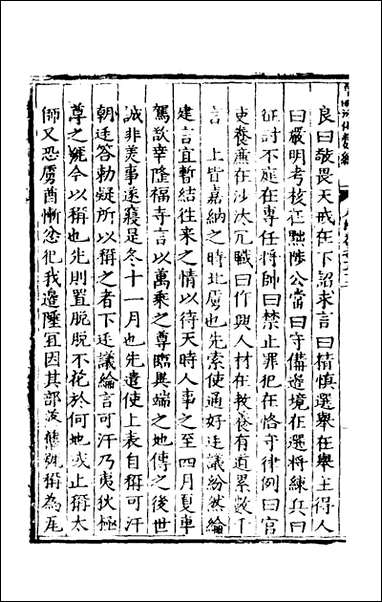 良曰敬畏天戒在下詔求言曰精慎選舉在舉主得人
曰嚴明考核在黜陟公當曰守備邊境在選將練兵曰
征討不庭在專任將帥曰禁止罪犯在恪守律例曰官
吏養廉在沙汰冗職曰作興人材在教養有道累數千
言 上皆嘉納之時北虜也先索使通好廷議紛然綸
建言宜暫結往來之情以待天時人事之至四月夏車
駕欲幸隆福寺言以萬乘之尊臨異端之地傳之後世
誠非美事遂寢是冬十一月也先遣使上表自稱可汗
朝廷答勑疑所以稱之者下廷議綸言可汗乃夷狄極
尊之號今以稱也先則置脫脫不花於何地或止稱太
師又恐虜酋慚忿犯我邊陲宜因其部落舊號稱為瓦